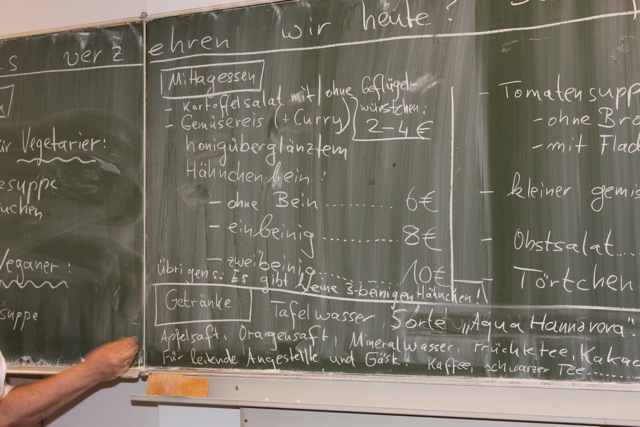 s verz ehren wir heute?
ür Vegetarier:
esuppe
uchen
Veganer:
suppe
Mittagessen
- Kartoffelsalat mit/ohne Geflügel-
würstchen:
2-4 €
- Gemüsereis (+ Curry)
honigüberglänztem
Hähnchenbein:
- ohne Bein ......... 6€
- einbeinig ......... 8€
- zweibeinig ......... 10€
Übrigens: Es gibt keine 3-beinigen Hähnchen!
- Tomatensupp
- ohne Bro
- mit Flad
- kleiner gemis
- Obstsalat....
- Törtchen
Getränke
Tafelwasser Sorte "Aqua Hannovera":
Apfelsaft, Orangensaft, Mineralwasser, Früchtetee, Kakao
Für leitende Angestellte und Gäste: Kaffee, schwarzer Tee.......